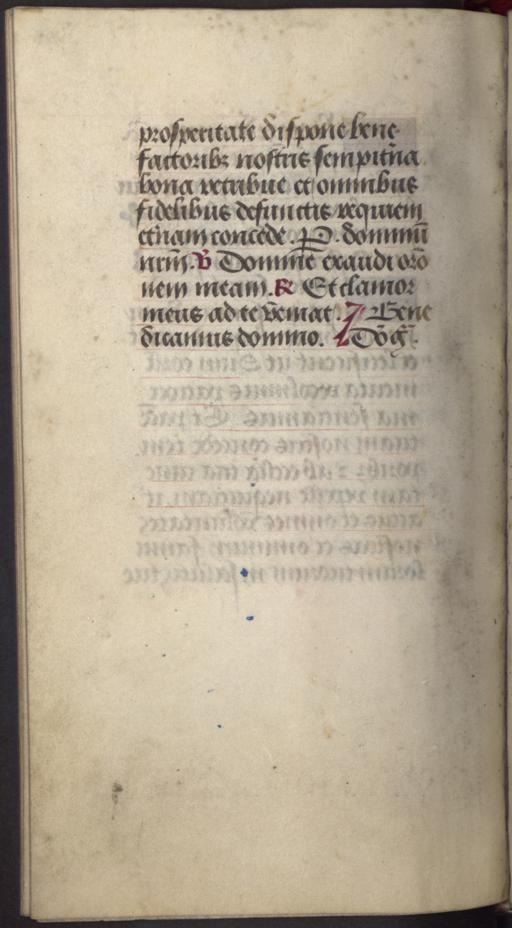 prosperitate dispone bene
factoribꝫ nostris sempit̄na
bona retribue et omnibus
fidelibus defunctis requiem
et̄nam concede. P. dominū
nr̄m. ꝟ Domine exaudi or̄o
nem meam. ℟ Et clamor
meus ad te veniat. Bene
dicamus domino. Dō gr̄